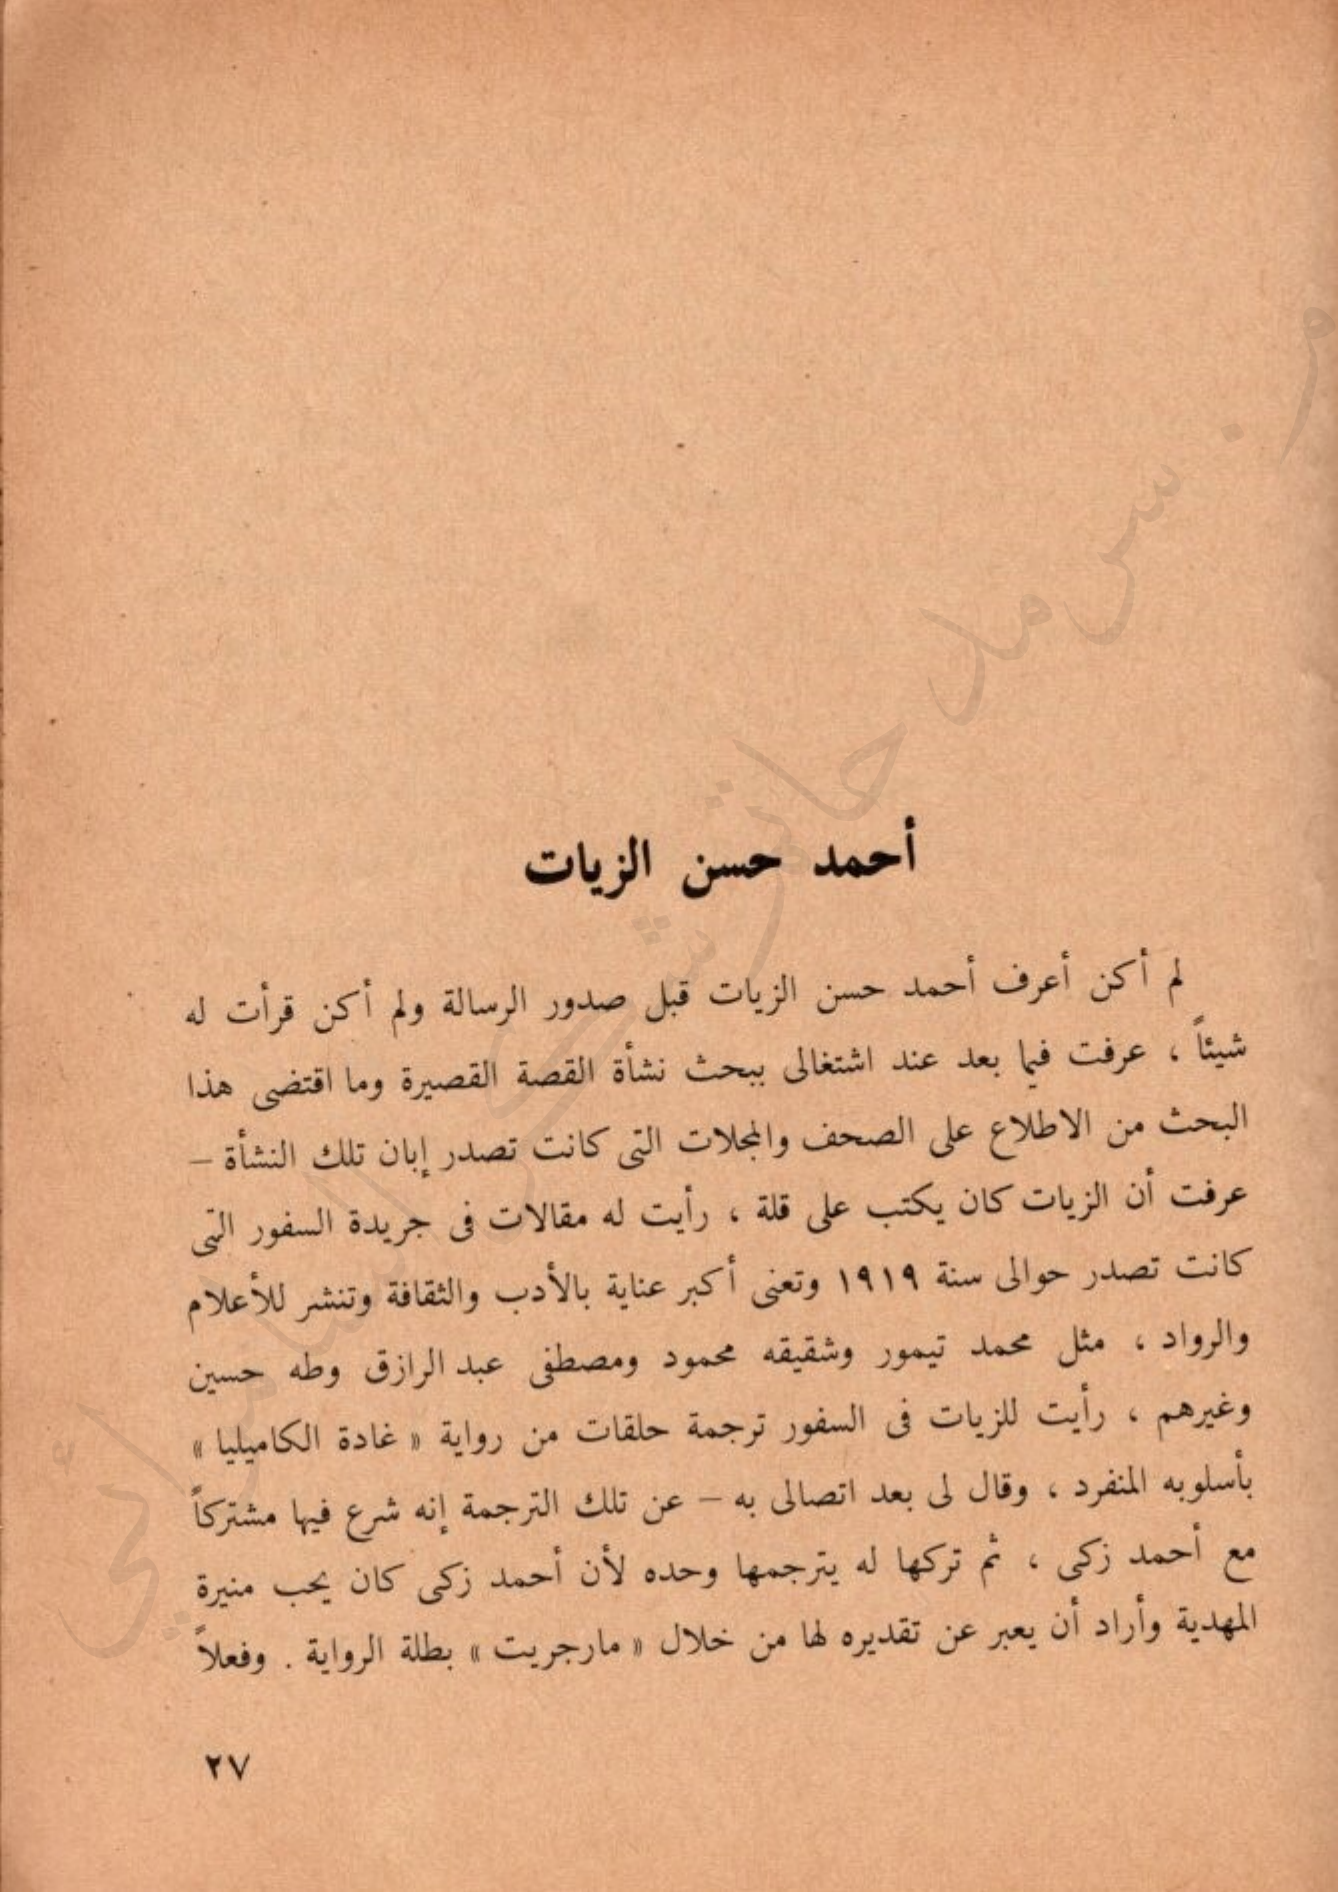 أحمد حسن الزيات
لم أكن أعرف أحمد حسن الزيات قبل صدور الرسالة ولم أكن قرأت له
شيئاً ، عرفت فيما بعد عند اشتغالى ببحث نشأة القصة القصيرة وما اقتضى هذا
البحث من الاطلاع على الصحف والمجلات التى كانت تصدر إبان تلك النشأة –
عرفت أن الزيات كان يكتب على قلة ، رأيت له مقالات فى جريدة السفور التى
كانت تصدر حوالى سنة ١٩١٩ وتعنى أكبر عناية بالأدب والثقافة وتنشر للأعلام
والرواد ، مثل محمد تيمور وشقيقه محمود ومصطفى عبد الرازق وطه حسين
وغيرهم ، رأيت للزيات فى السفور ترجمة حلقات من رواية « غادة الكاميليا »
بأسلوبه المنفرد ، وقال لى بعد اتصالى به – عن تلك الترجمة إنه شرع فيها مشتركاً
مع أحمد زكى ، ثم تركها له يترجمها وحده لأن أحمد زكى كان يحب منيرة
المهدية وأراد أن يعبر عن تقديره لها من خلال « مارجريت » بطلة الرواية . وفعلاً
٢٧